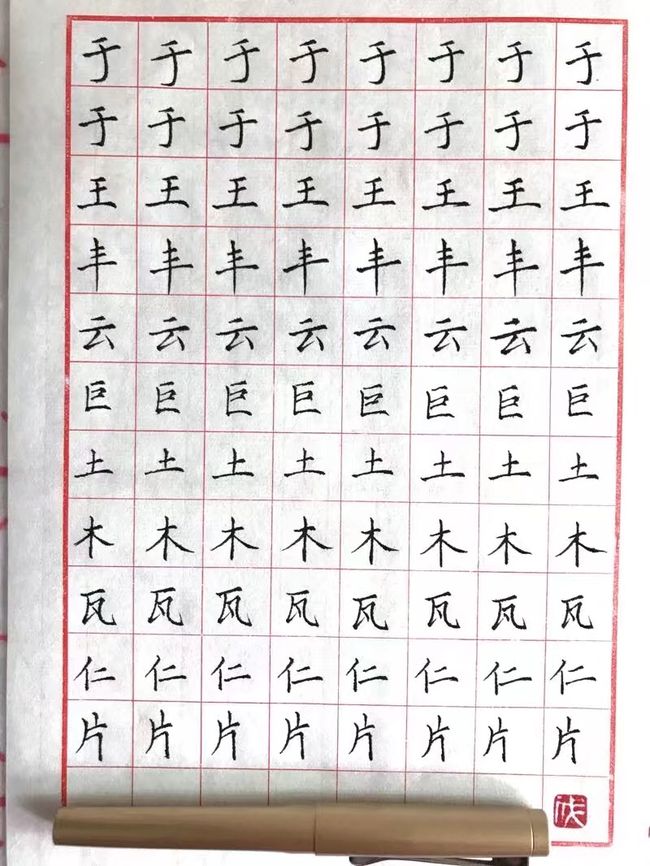 于于于于于于于于
于于于于于于于于
王王王王王王王王
丰丰丰丰丰丰丰丰
云云云云云云云云
巨巨巨巨巨巨巨巨
土土土土土土土土
木木木木木木木木
瓦瓦瓦瓦瓦瓦瓦瓦
仁仁仁仁仁仁仁仁
片片片片片片片片